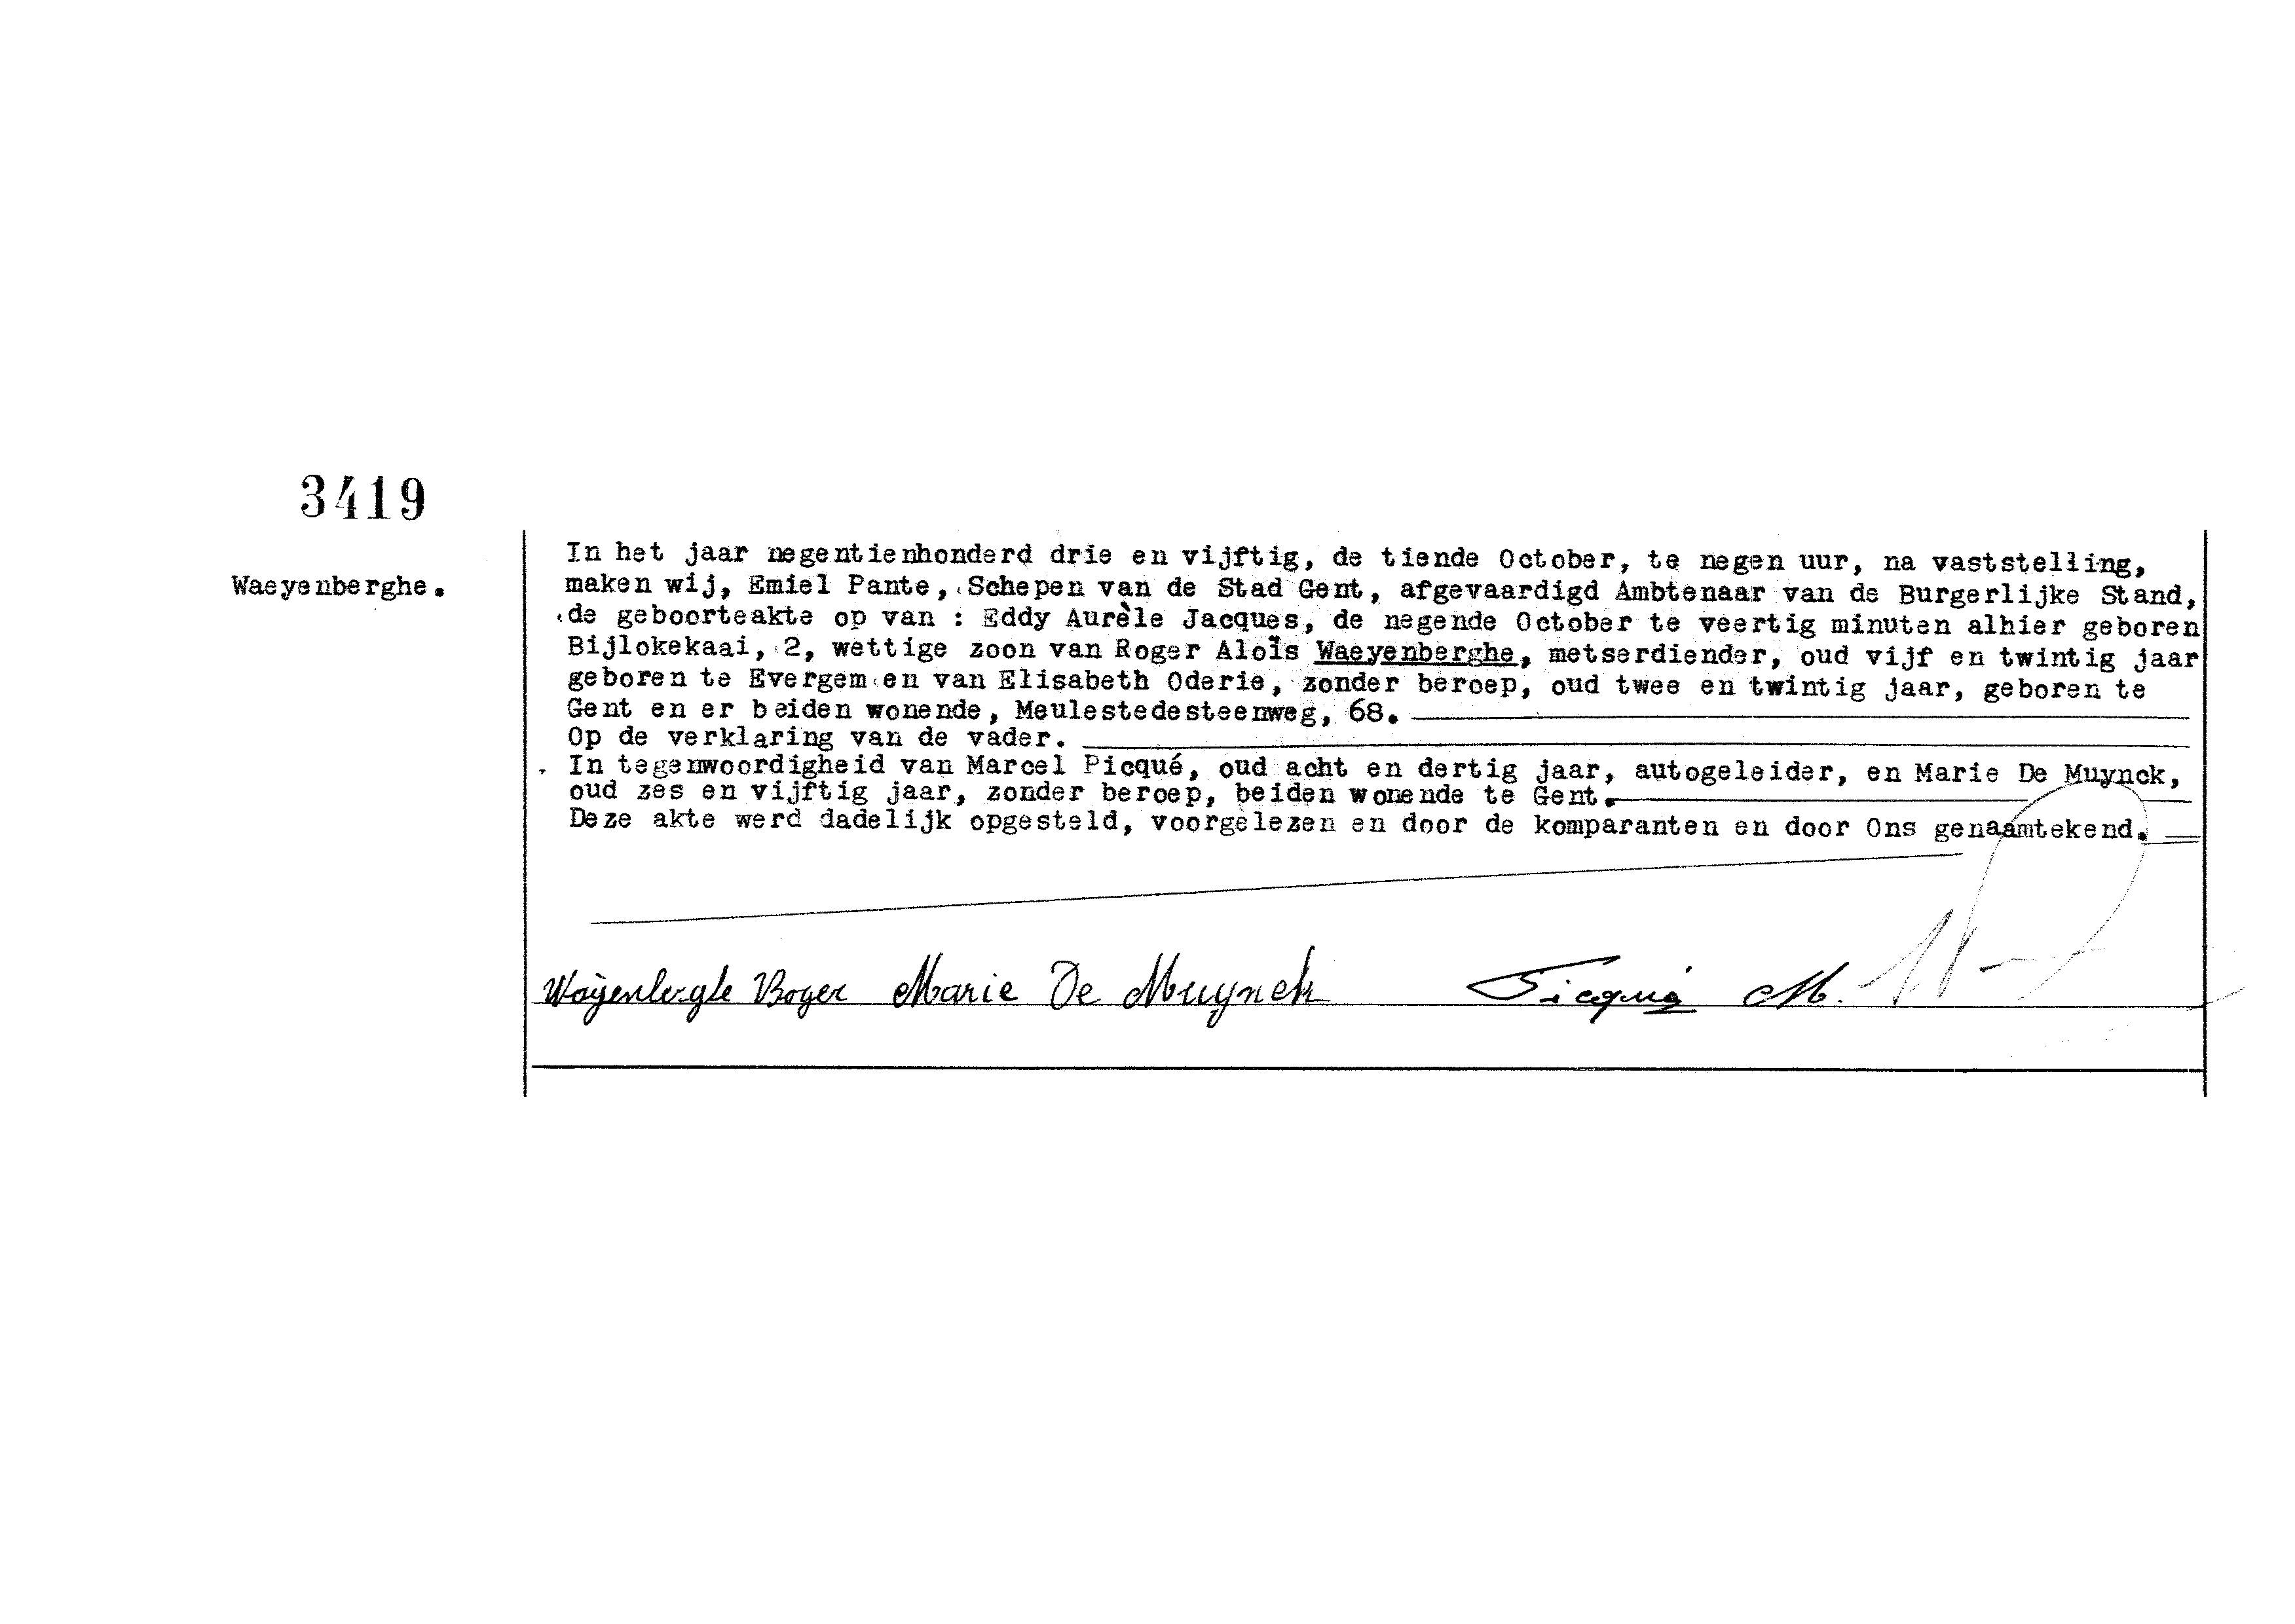 3419
Waeyenberghe.
In het jaar negentienhonderd drie en vijftig, de tiende October, te negen uur, na vaststelling,
maken wij, Emiel Pante, Schepen van de Stad Gent, afgevaardigd Ambtenaar van de Burgerlijke Stand,
de geboorteakte op van : Eddy Aurèle Jacques, de negende October te veertig minuten alhier geboren
Bijlokekaai, 2, wettige zoon van Roger Aloïs Waeyenberghe, metserdiender, oud vijf en twintig jaar
geboren te Evergem en van Elisabeth Oderie, zonder beroep, oud twee en twintig jaar, geboren te
Gent en er beiden wonende, Meulestedesteenweg, 68.
Op de verklaring van de vader.
In tegenwoordigheid van Marcel Picqué, oud acht en dertig jaar, autogeleider, en Marie De Muynck,
oud zes en vijftig jaar, zonder beroep, beiden wonende te Gent.
Deze akte werd dadelijk opgesteld, voorgelezen en door de komparanten en door Ons genaamtekend.
Roger Marie De Muynck Picqué M.